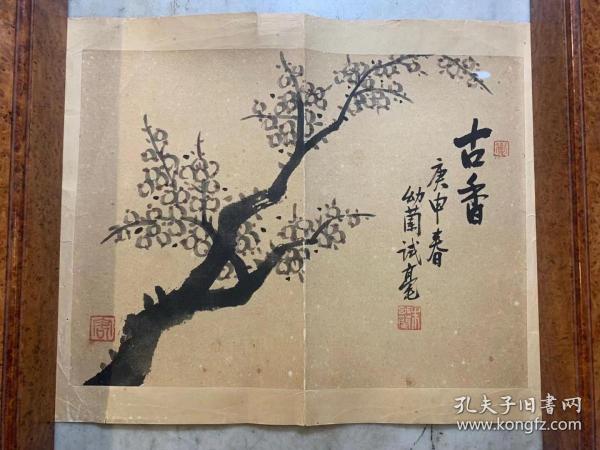 古香
庚申春
幼蘭試毫
孔夫子旧書网
www.kongfz.com